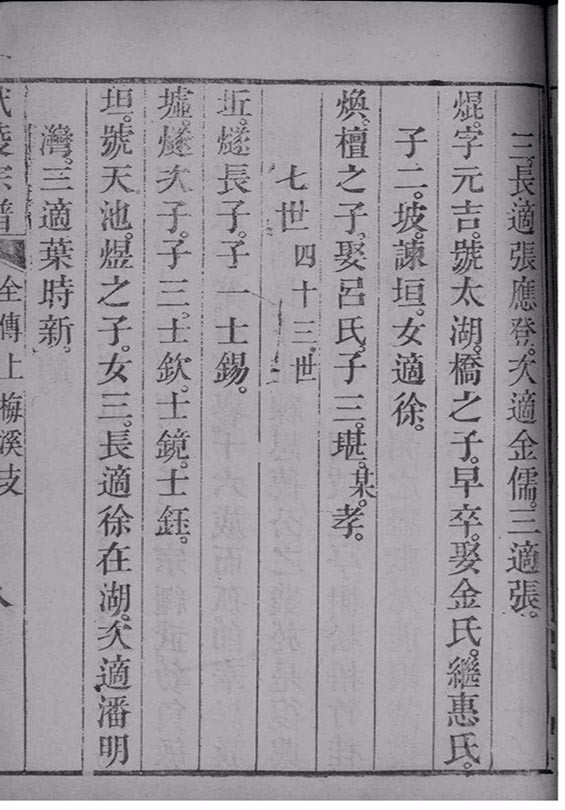 三、長適張應登。次適金儒。三適張。
焜。字元吉。號太湖。橋之子。早卒。娶金氏。繼惠氏。
子二。坡。諫垣。女適徐。
煥。檀之子。娶呂氏。子三。堪。某。孝。
七世 四十三世
坵。燧長子。子一士錫。
墟。燧次子。子三。士欽。士鏡。士鈺。
垣。號天池。煜之子。女三。長適徐在湖。次適潘明
灣。三適葉時新。
武陵宗譜 全傳上梅溪支 八